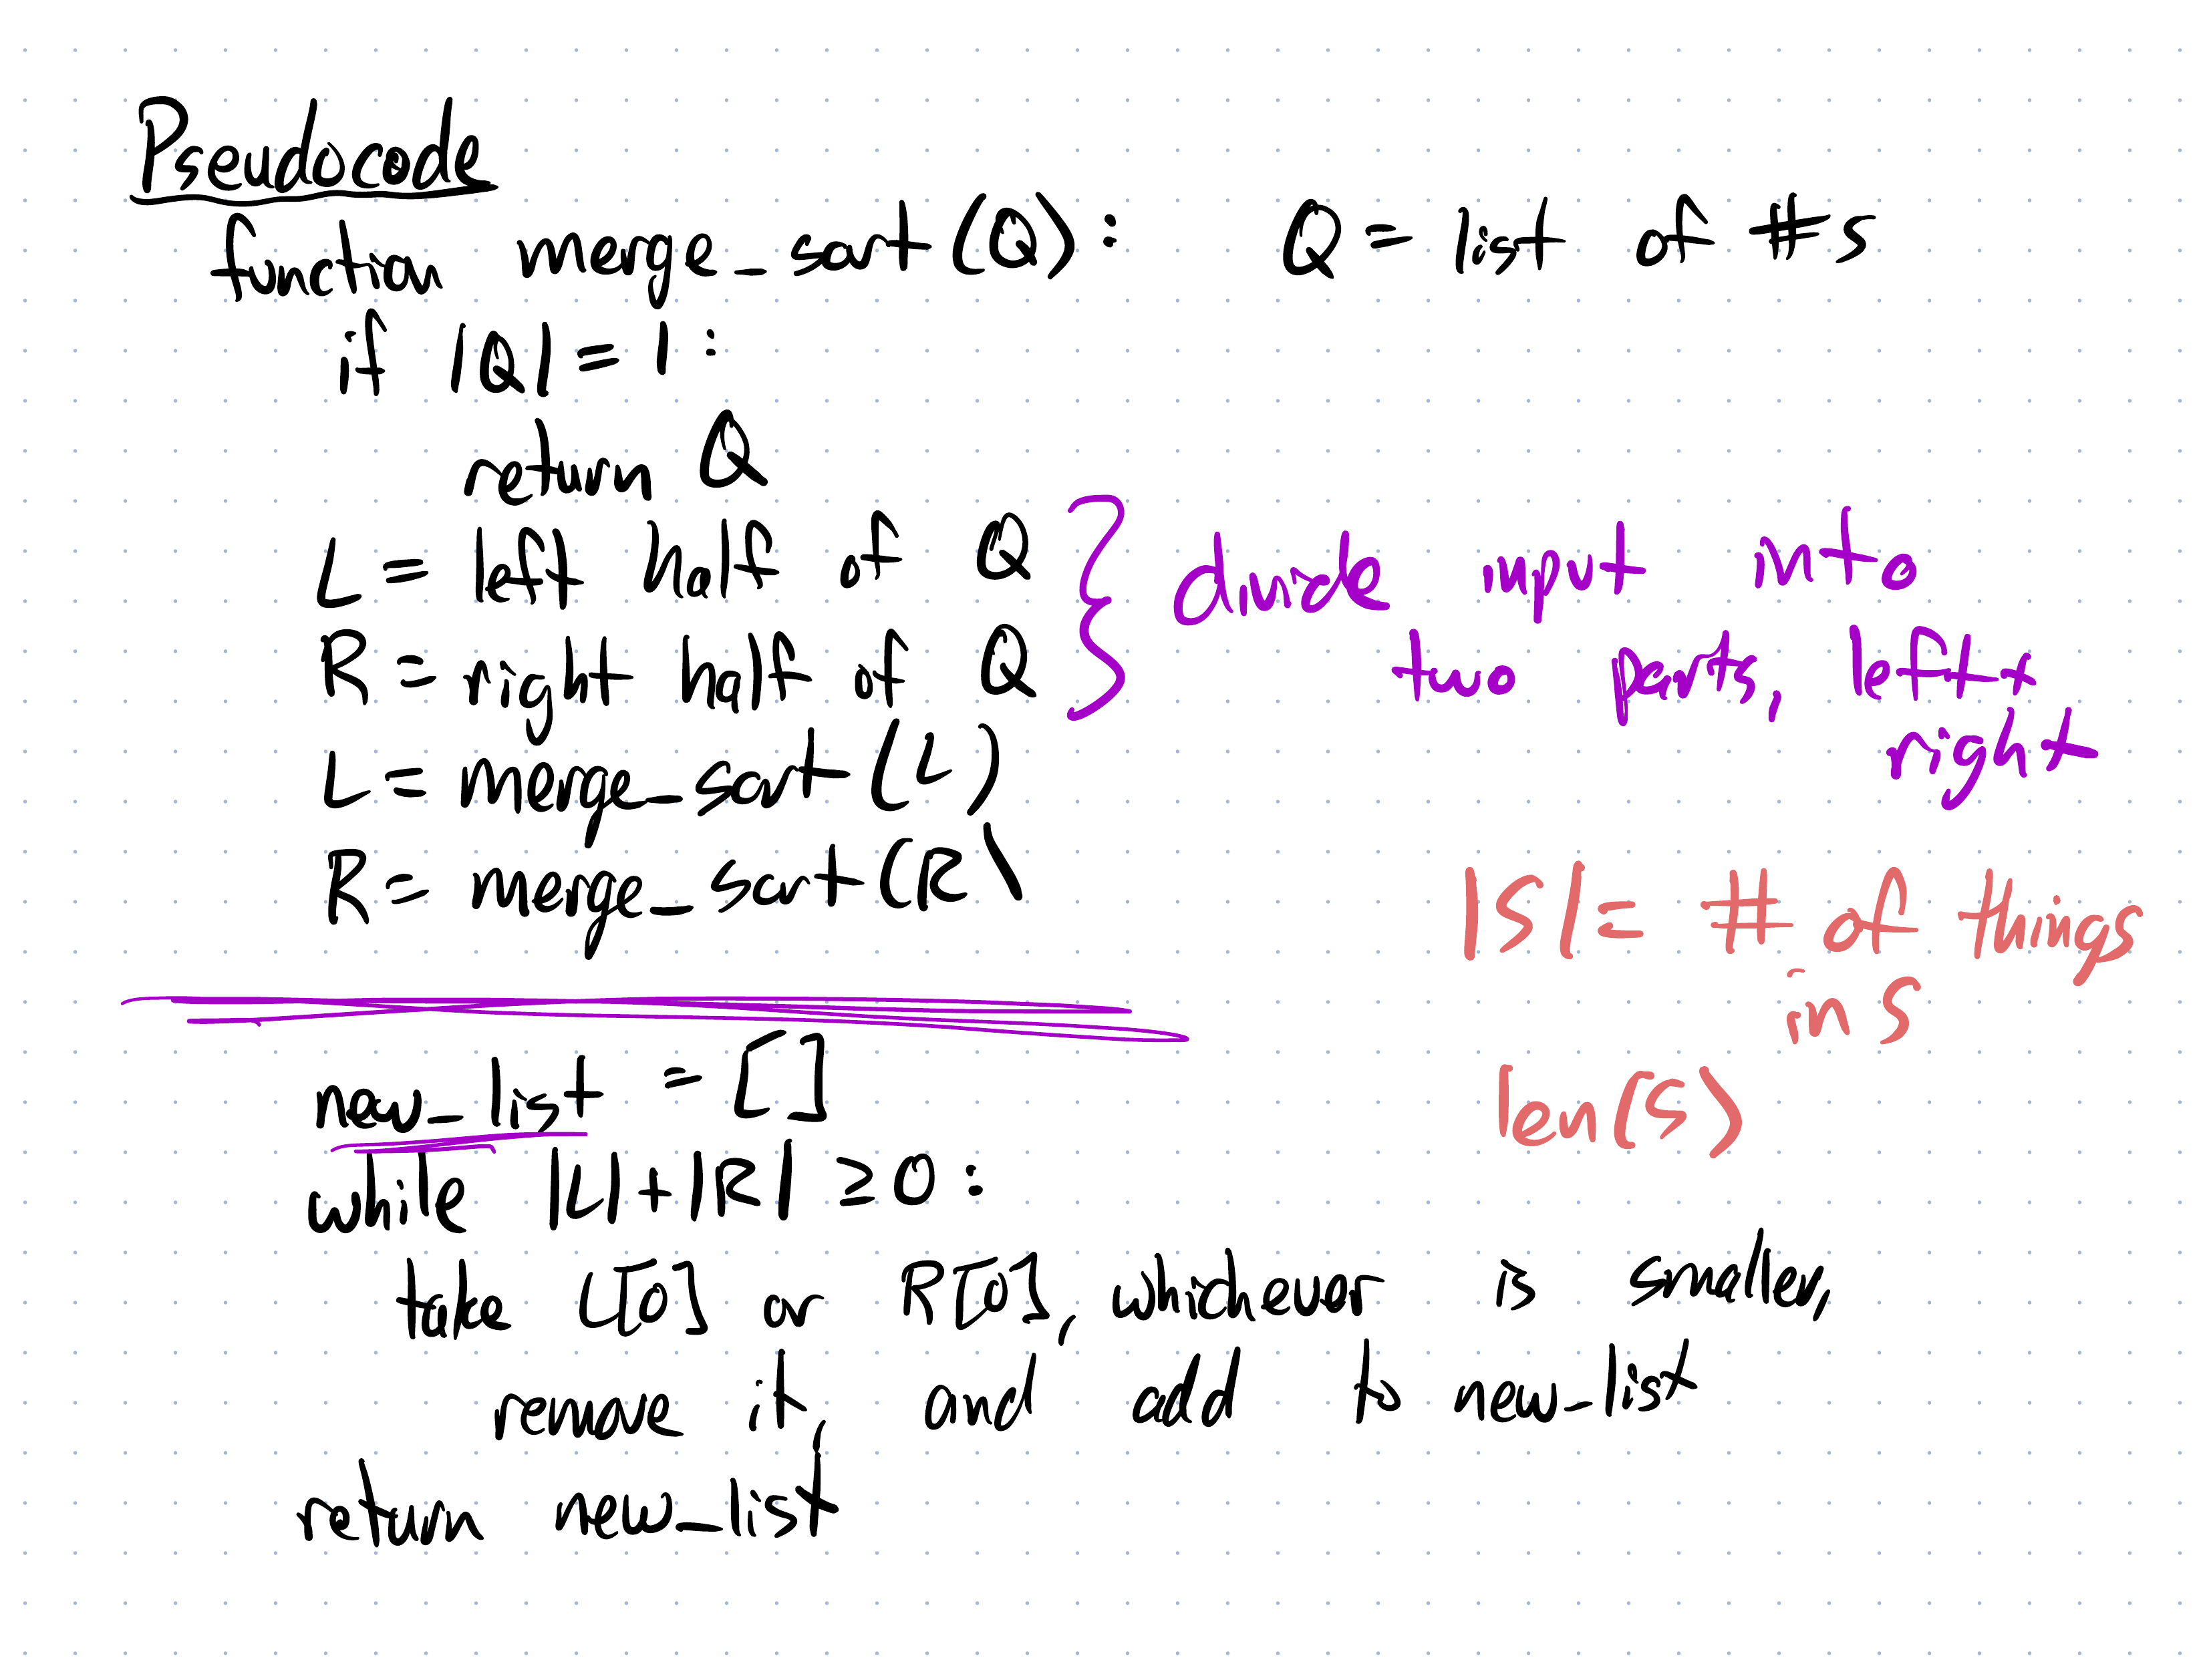 Pseudocode
function merge_sort(Q): Q = list of #s
if |Q| = 1:
return Q
L = left half of Q
R = right half of Q
divide input into
two parts, left +
right
L = merge_sort(L)
R = merge_sort(R)
|S| = # of things
in S
len(S)
new_list = []
while |L|+|R| ≥0:
take L[0] or R[0], whichever is smaller,
remove it, and add to new_list
return new_list